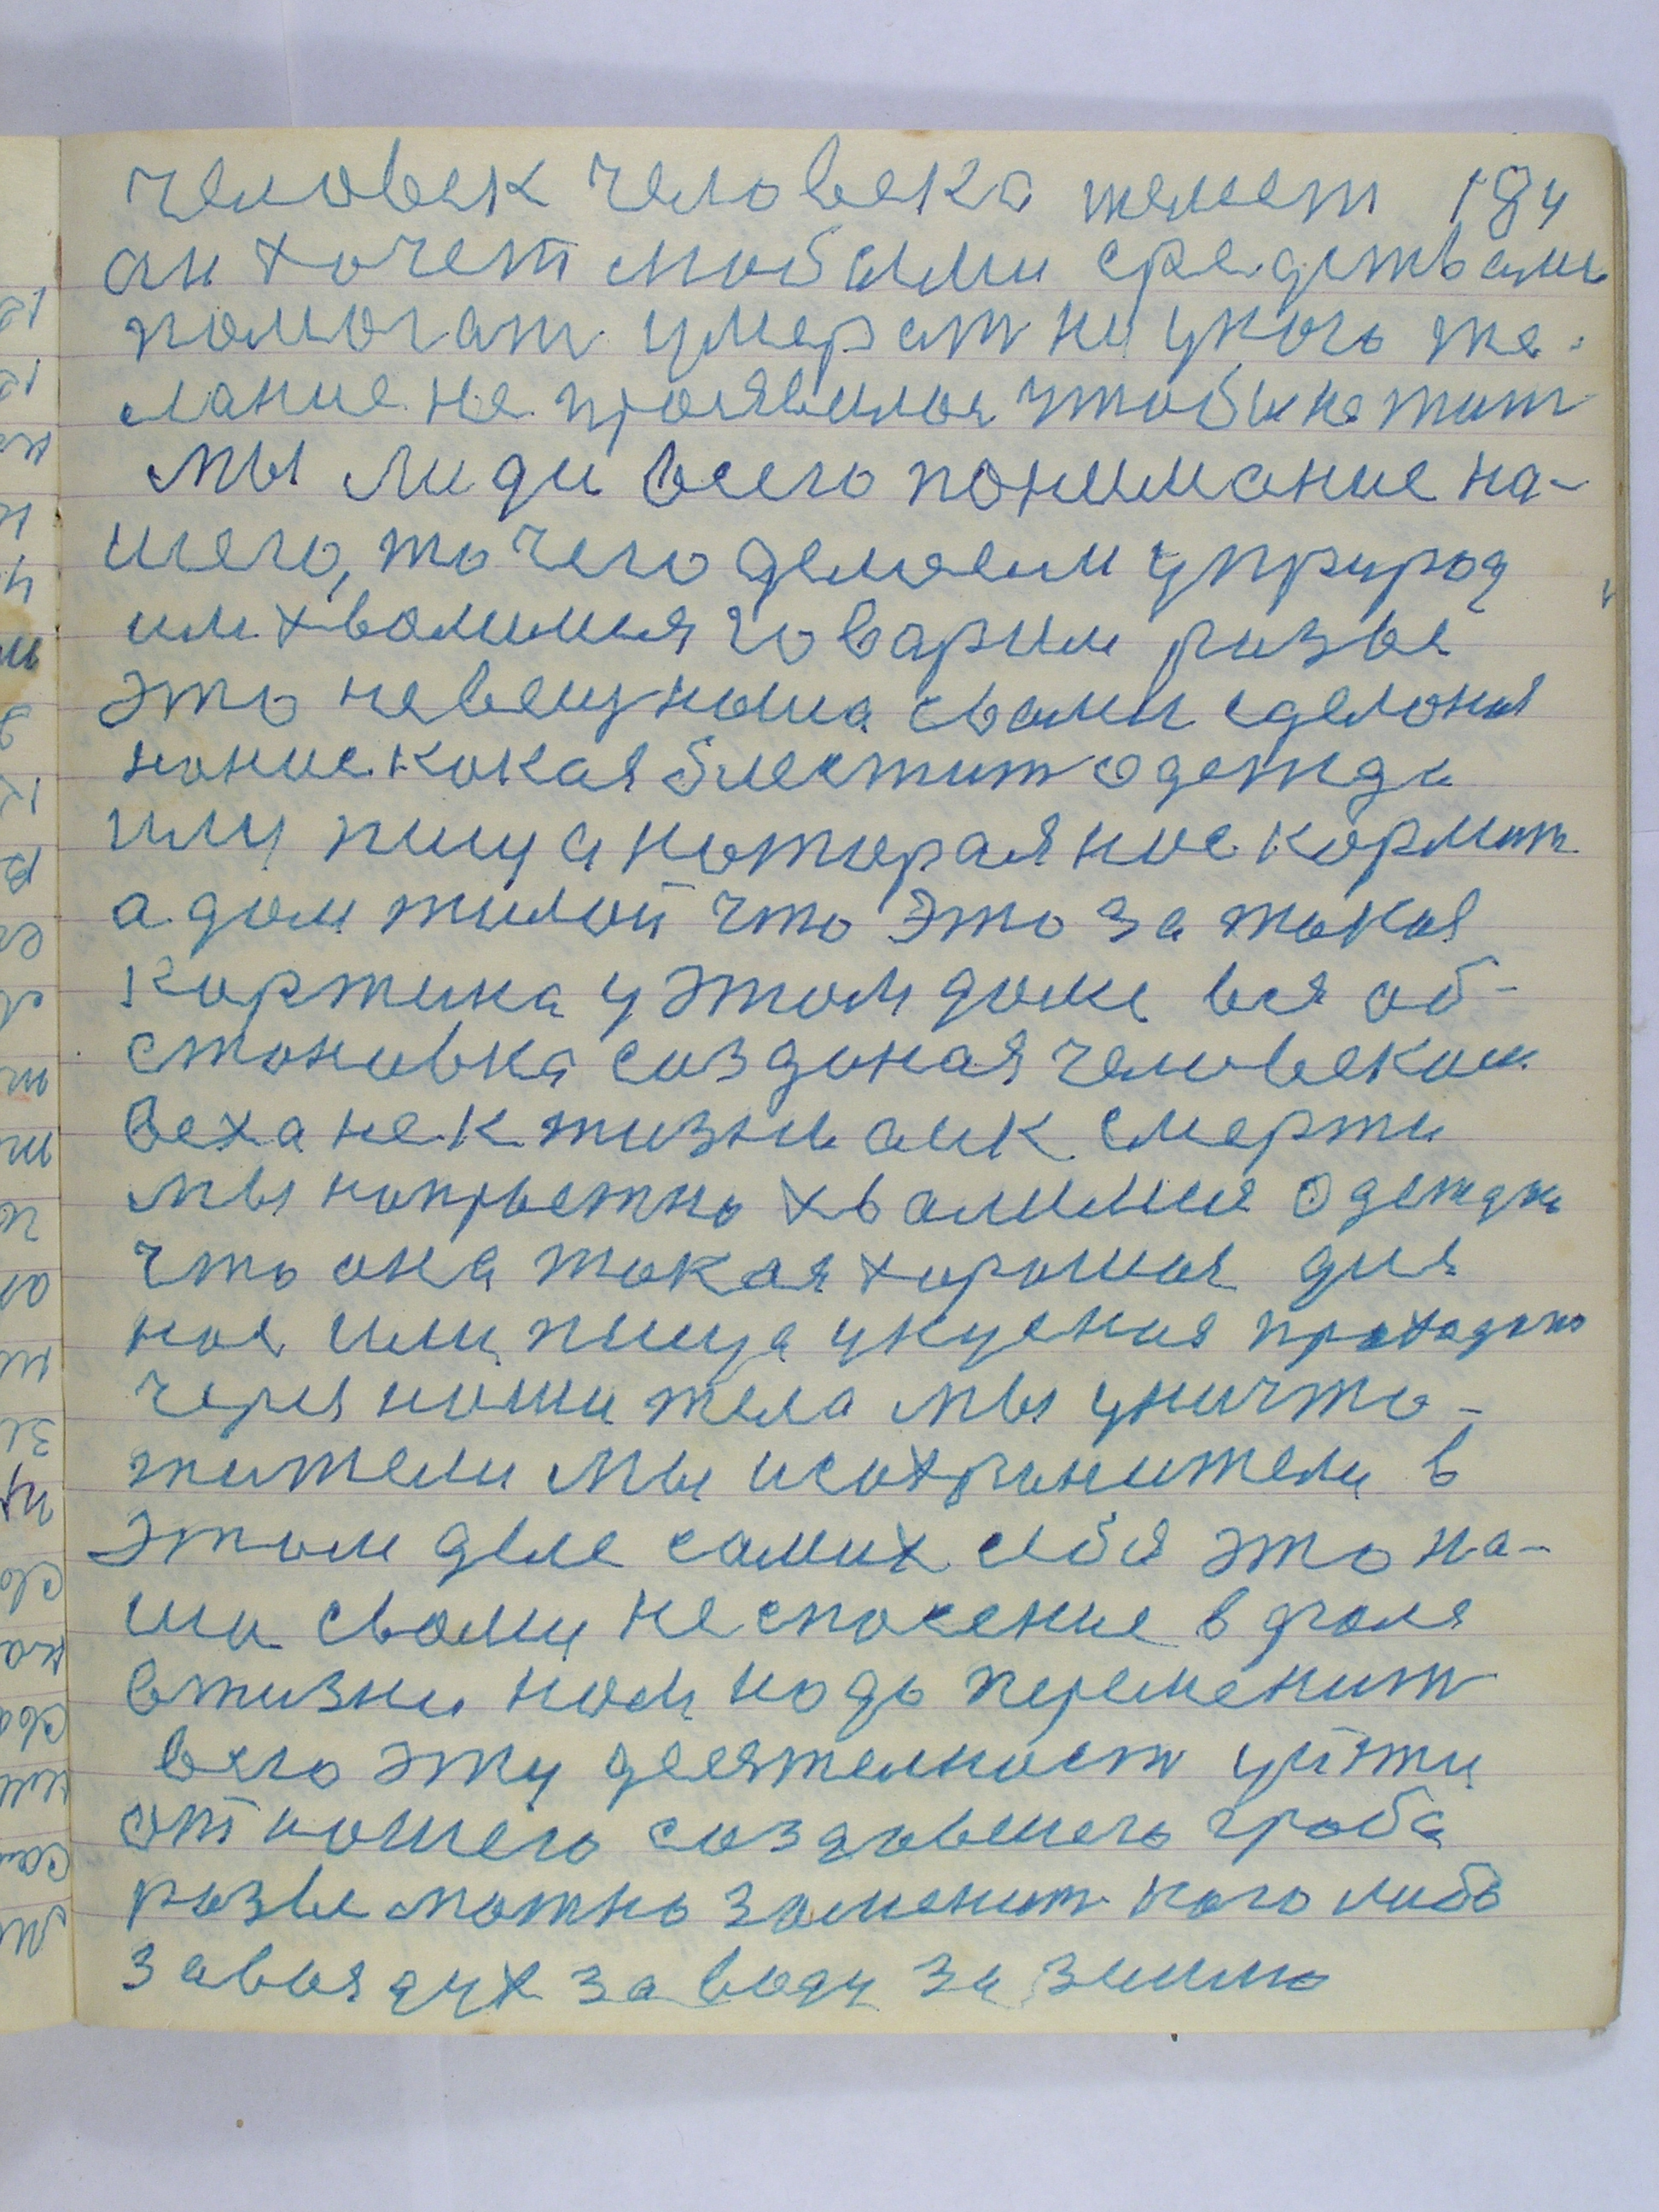 человек человека желеет 184
он хочет любыми средствами
помогат умерат ни укого же-
лание не проявилос чтобы не жит
мы люди всего понимание на-
шего, то чего делаем уприрод
им хвалимся говарим разве
это невещ наша своми сделоная
какая блестит одежда
или пища которая нос кормит
а дом жилой что это за такая
картина у этом доме вся об-
становка создоная человеком
не к жизни а к смерти
мы напросно хвалимся одежды
что она такая хорошая для
нос или пища укусная
через ноши тела мы уничто-
жители мы и сохранители в
этом деле самих себя это на-
ши свами не спосение
вжизни ном нодо переменит
всю эту деятелност уйти
от ношего создавшего гроба
розве можно заменит кого либо
за воздух за воду за землю